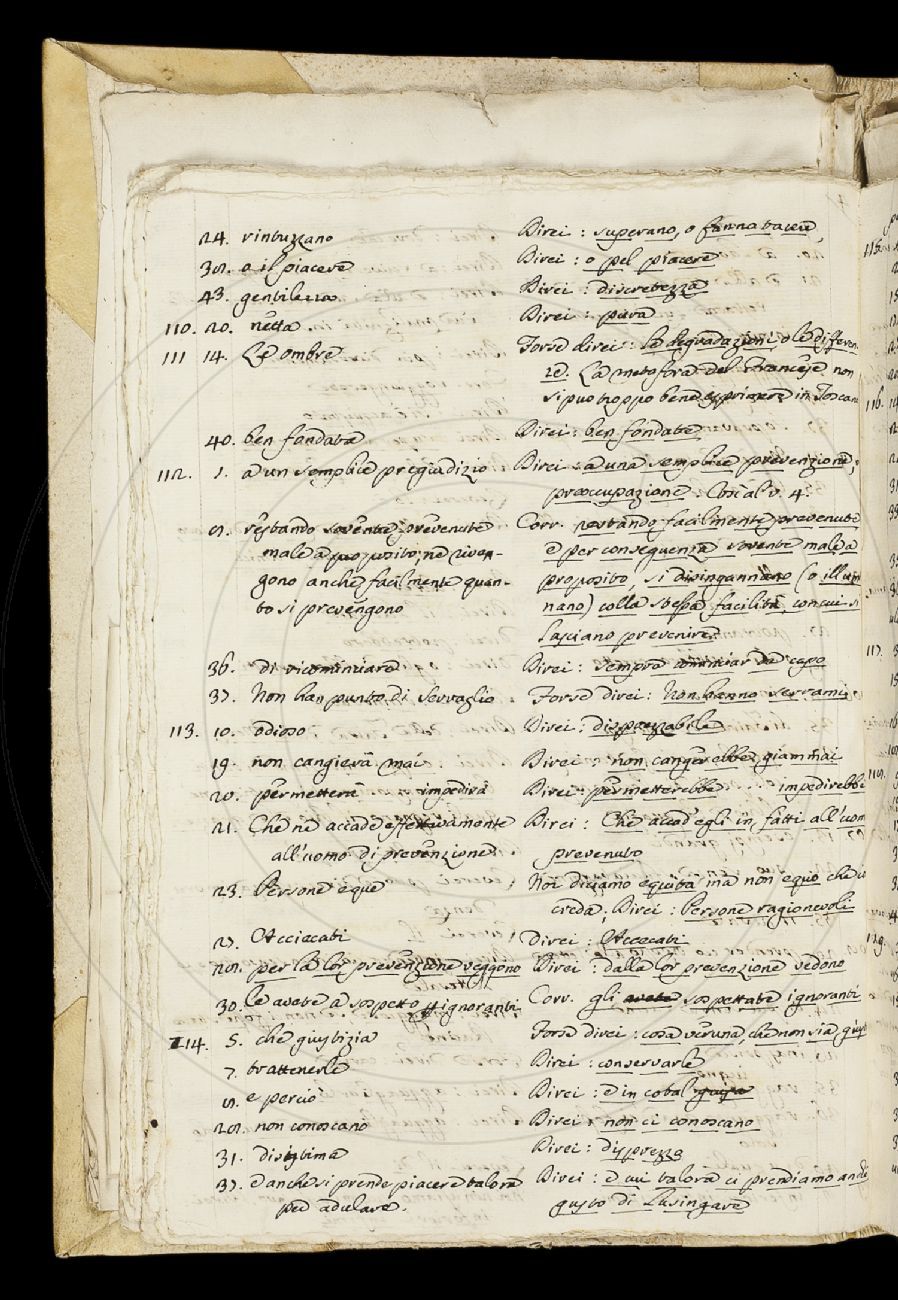 24. rintuzzano Direi: superano, o fanno tacere,
32. o il piacere Direi: o pel piacere
43. gentilezza Direi: discretezza
110. 20. netta Direi: pura
111 14. Le ombre Forse direi: la degradazioni, o le differen
ze. La metafora del Francese non
si puo troppo bene esprimere in Toscan
40. ben fondata Direi: ben fondate
112. 1. a un semplice pregiudizio Direi: a una semplice prevenzione,
preoccupazione. Così al v. 4.
9. restando sovente prevenute Corr. restando facilmente prevenute
male a proposito, ne riven- e per conseguenza sovente male a
gono anche facilmente quan- proposito, si disingannano (o illumi
to si prevengono nano) colla stessa facilità, con cui si
lasciano prevenire.
36. di ricominciare Direi: sempre cominciar da capo
37. Non han punto di serraglio Forse direi: Non hanno serrami
113. 10. odioso Direi: disprezzabile
19. non cangierà mai Direi: non cangerebbe giammai
20. permetterà impedirà Direi: permetterebbe impedirebbe
21. Che ne accade effettivamente Direi: Che accad' egli in fatti all'uom
all'uomo di prevenzione prevenuto
23. Persone eque Noi diciamo equità ma non equo che io
creda. Direi: Persone ragionevoli
27. Acciecati Direi: Accecati
29. per la lor prevenzione veggono Direi: dalla lor prevenzione vedono
30. le avete a sospetto ignoranti Corr. gli avete sospettate ignoranti
114. 5. che giustizia Forse direi: cosa veruna, che non sia giust
7. trattenerle Direi: conservarle
9. e perciò Direi: e in cotal guisa
29. non conoscano Direi: non ci conoscano
31. disistima Direi: disprezzo
37. e anche si prende piacere talora Direi: e cui talora ci prendiamo anche
per adulare. gusto di lusingare